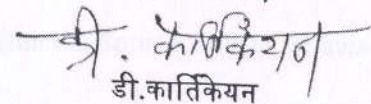 डी. कार्तिकेयन
डी.कार्तिकेयन